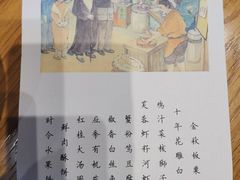 金秋板栗
十年花雕白
鸡汁菜核狮子
芙蓉虾仔河虾
蟹粉笃豆
椒香白丝
应季有机
红桂大汤圆
鲜肉酥饼
时令水果